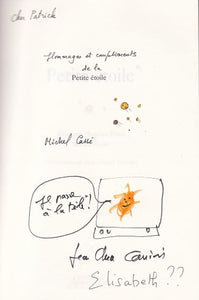 cher Patrick
Hommages et compliments
de la
Petite étoile
Michel Cassé
"Je passe
à la télé"!
Elisabeth ??